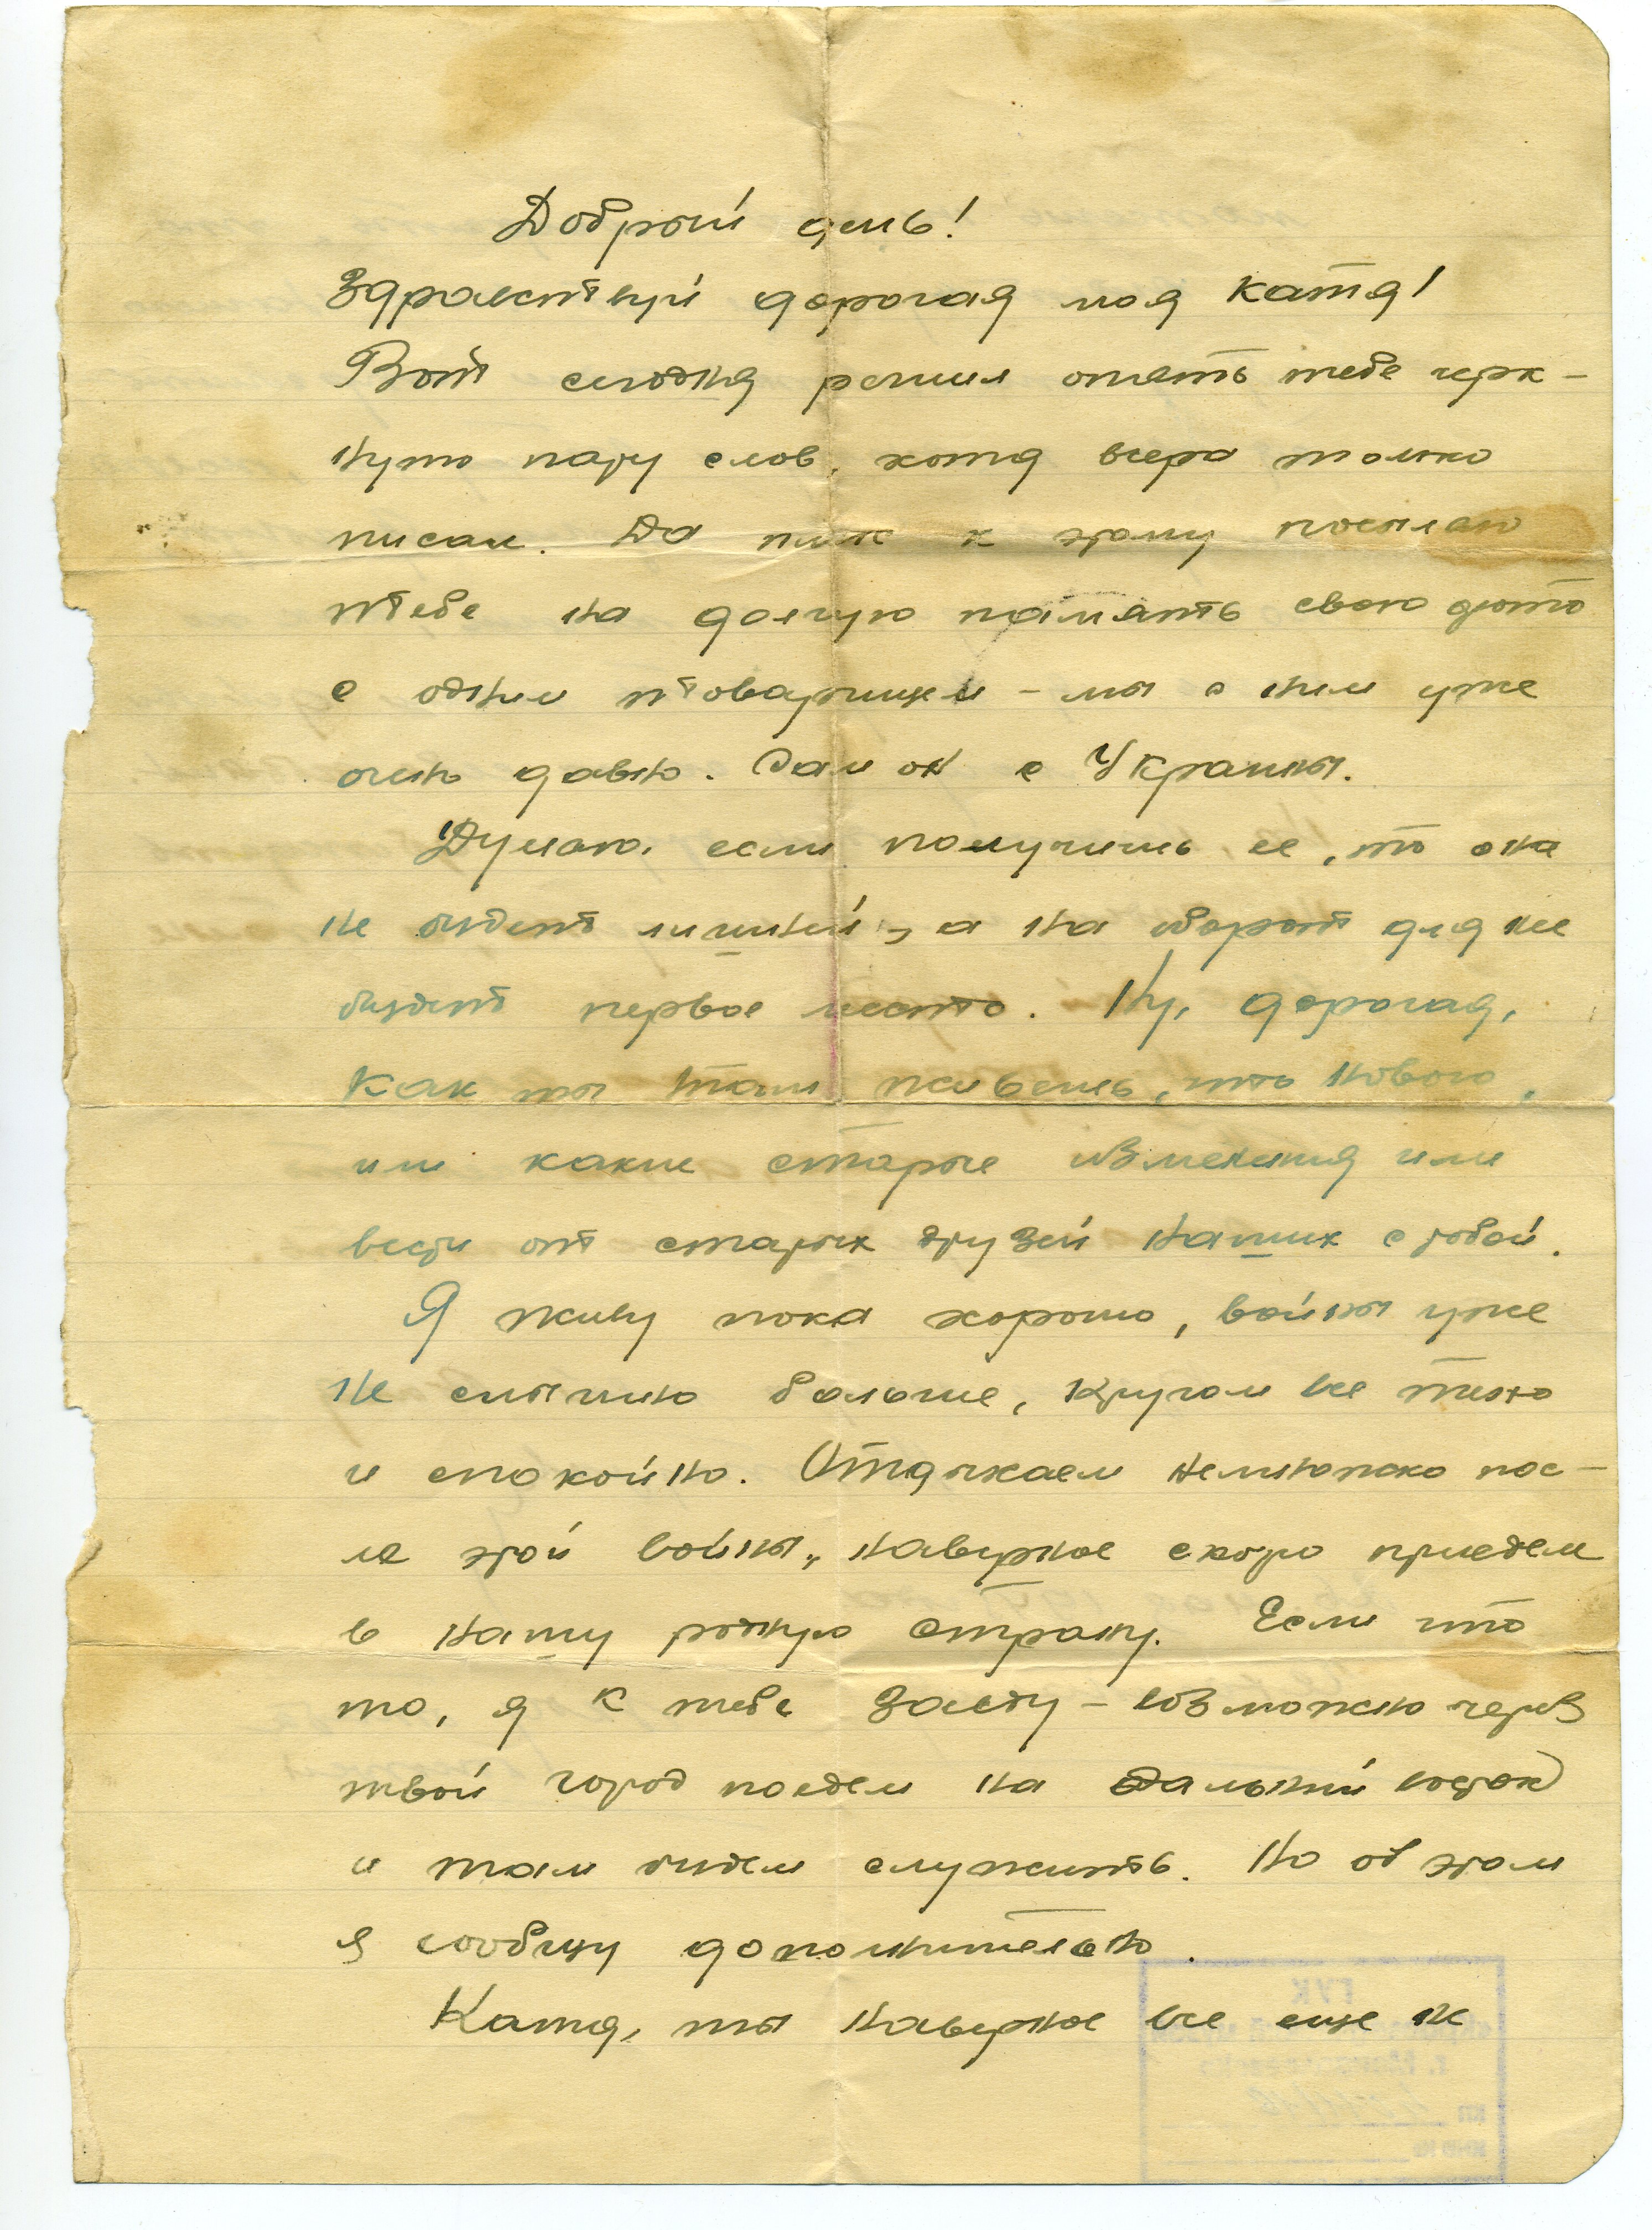 Добрый день!
Здравствуй дорогая моя Катя!
Вот сегодня решил опять тебе черк-
нуть пару слов, хотя вчера только
писал. Да плюс к этому посылаю
тебе на долгую память свою фото
с одним товарищем – мы с ним уже
очень давно. Сам он с Украины.
Думаю, если получишь ее, то она
не будет лишней, а на оборот для нее
будет первое место. Ну, дорогая,
как ты там живешь, что нового,
или какие старые изменения или
вести от старых друзей наших с тобой.
Я живу пока хорошо, войны уже
не слышно больше, кругом все тихо
и спокойно. Отдыхаем немножко пос-
ле этой войны, наверное скоро приедем
в нашу родную страну. Если что
то, я к тебе заеду – возможно через
твой город поедем на дальний восток
и там будем служить. Но об этом
я сообщу дополнительно.
Катя, ты наверное все еще не
ГУК
КП